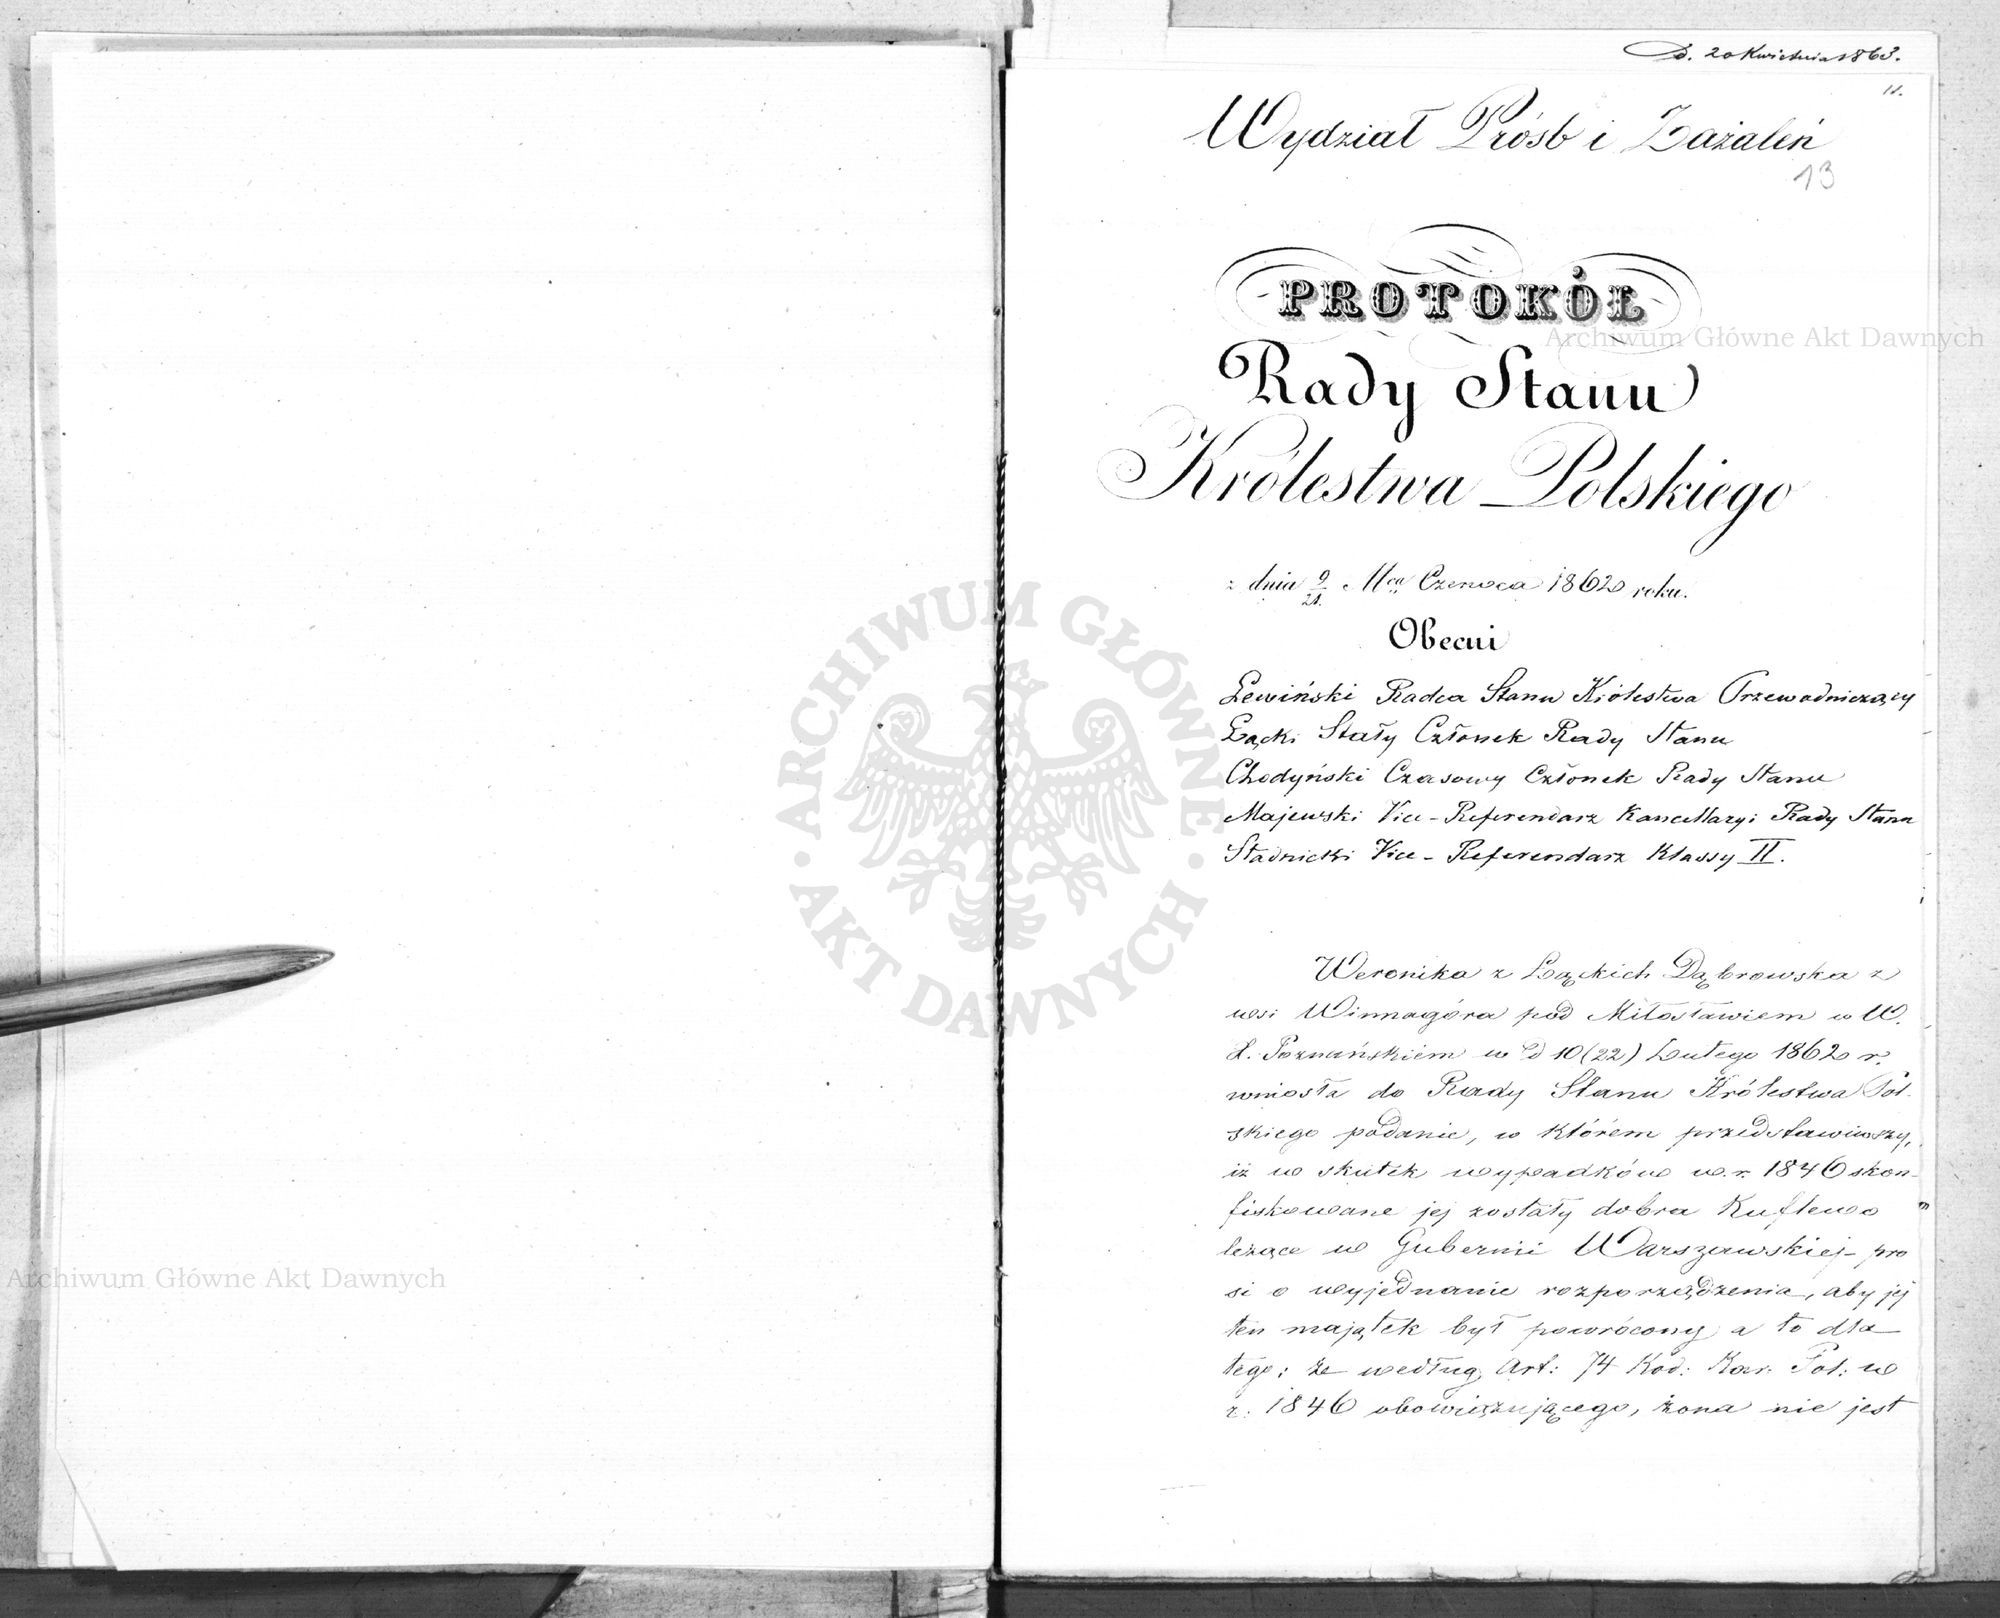 D. 20 Kwietnia 1863.
11.
Wydział Próśb i Zażaleń
13
PROTOKÓŁ
Rady Stanu
Królestwa Polskiego
z dnia 9/21. Mca Czerwca 1862 roku.
Obecni
Lewiński Radca Stanu Królestwa Przewodniczący
Łącki Stały Członek Rady Stanu
Chodyński Czasowy Członek Rady Stanu
Majewski Vice-Referendarz Kancellaryi Rady Stanu
Stadnicki Vice-Referendarz Klassy II.
Weronika z Łąckich Dąbrowska z
wsi Winnagóra pod Miłosławiem w W.
X. Poznańskiem w d 10 (22) Lutego 1862 r.
wniosła do Rady Stanu Królestwa Pol-
skiego podanie, w którem przedstawiwszy,
iż w skutek wypadków w r. 1846 skon-
fiskowane jej zostały dobra Kuflewo
leżące w Gubernii Warszawskiej - pro
si o wyjednanie rozporządzenia, aby jej
ten majątek był powrócony a to dla
tego: że według Art: 74 Kod: Kar: Pol: w
r: 1846 obowiązującego, żona nie jest
Archiwum Główne Akt Dawnych
Archiwum Główne Akt Dawnych
ARCHIWUM GŁÓWNE AKT DAWNYCH